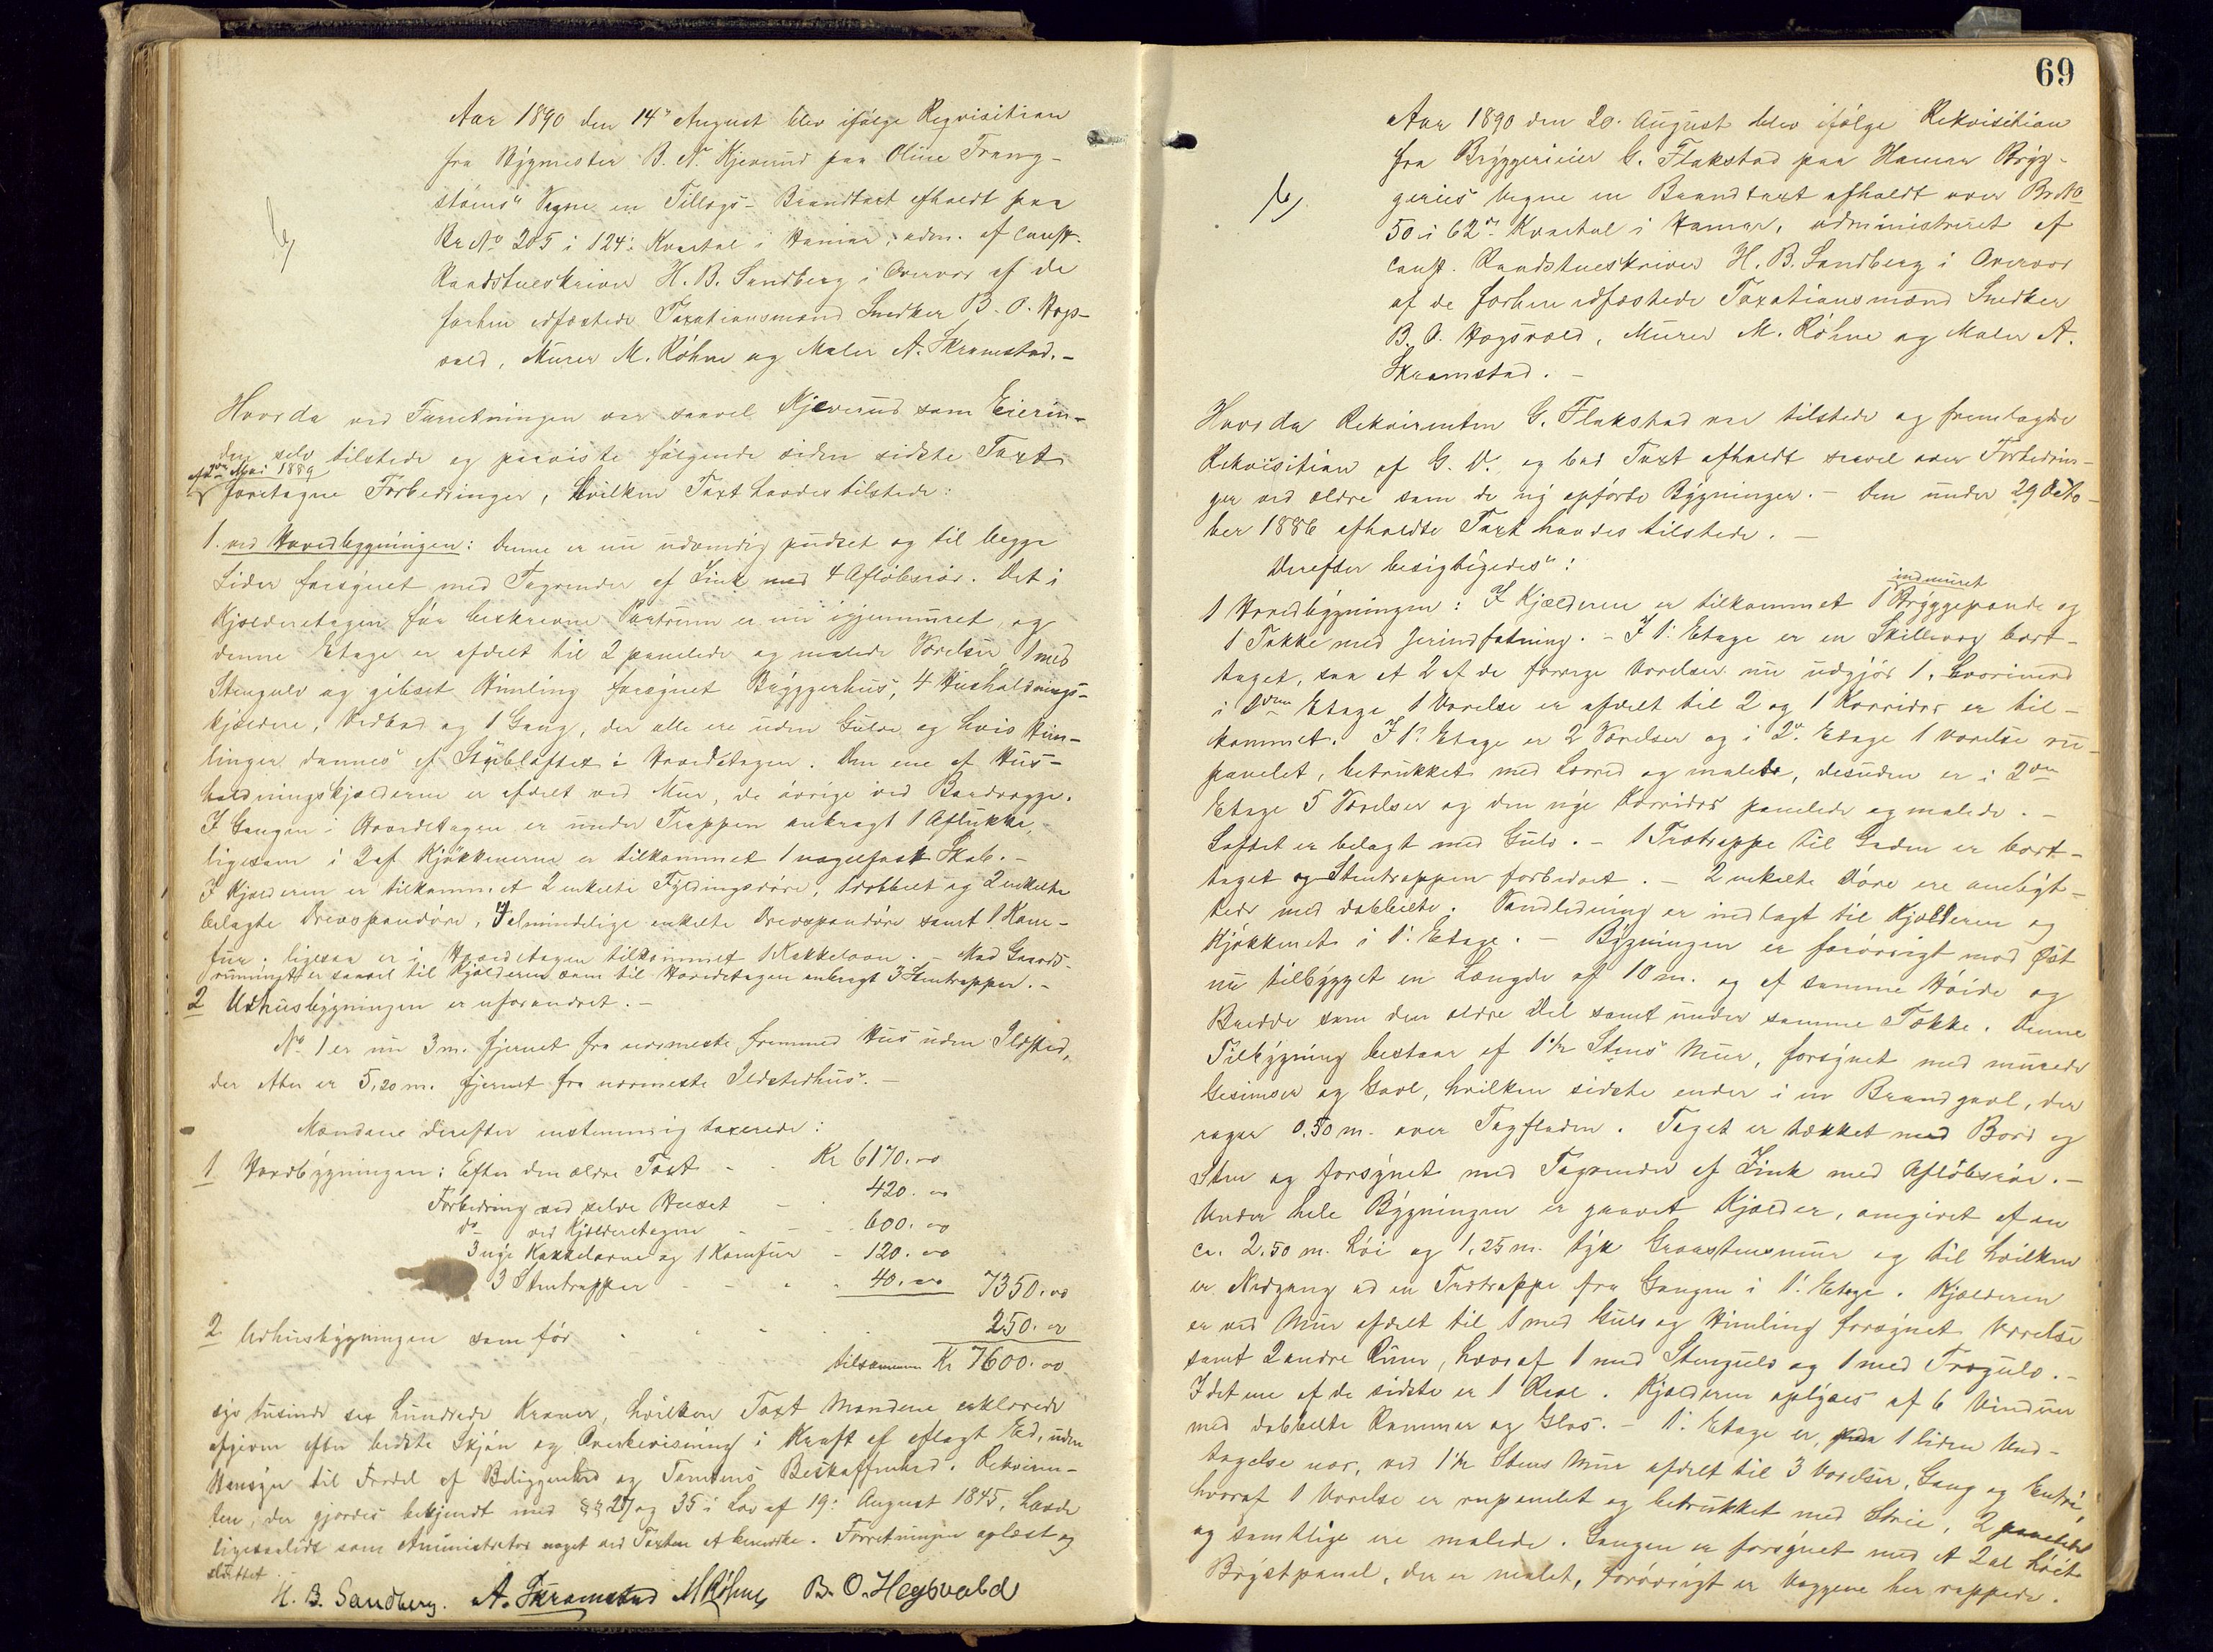 Aar 1890 den 14' August blev ifølge Reqvisition
fra Bygmester B. N. Kjeverud paa Oline Trang-
støms Vegne en Tillægs-Brandtaxt afholdt paa
Br No 205 i 124: Kvartal i Hamar, adm. af const.
Raadstueskriver H. B. Sandberg i Overvær af de
forhen edfæstede Taxationsmænd Snedker B. O. Hags-
vald, Murer M. Røhne og Maler A. Skramstad. -
Hvorda ved Forretningen var saavel Kjeverud som Eierin-
den selv tilstede og paaviste følgende siden sidste Taxt
af Mai 1889
foretagne Forbedringer, hvilken Taxt havdes tilstede:
1. ved Hovedbygningen: Denne er nu udvendig pudset og til begge
Sider forsynet med Tagrender af Zink med 4 Afløbsrør. Det i
Kjælderetagen før beskrevne Portrum er nu igjenmuret, og
denne Etage er afdelt til 2 panelede og malede Værelser, 1 med
Stengulv og gibset Himling forsynet Bryggerhus, 4 Husholdnings-
kjældere, Vedbod og 1 Gang, der alle ere uden Gulve og hvis Him-
linger dannes af Stubloftet i Hovedetagen. Den ene af Hus-
holdningskjælderne er afdelt ved Mur, de øvrige ved Bordvægge.
I Gangen i Hovedetagen er under Trappen anbragt 1 Aflukke,
ligesom i 2 af Kjøkkenerne er tilkommet 1 nagelfast Skab. -
I Kjælderen er tilkommet 2 enkelte Fyldingsdøre, 1 dobbelt og 2 enkelte
belagte Drevspandøre, 7 almindelige enkelte Drevspandøre samt 1 Kom-
fur, ligesaa er i Hovedetagen tilkommet 1 Kakkelovn. - Mod Gaards-
rummet er saavel til Kjælderen som til Hovedetagen anbragt 3 Stentrapper. -
2 Udhusbygningen er uforandret. -
No 1 er nu 3 m. fjernet fra nærmeste fremmed Hus uden Ildsted,
der atter er 5,20 m. fjernet fra nærmeste Ildstedhus. -
Mændene derefter enstemmig taxerede:
1 Hovedbygningen: Efter den ældre Taxt - - Kr 6170.00
Forbedring ved selve Huset - - 420.00
do ved Kjælderetagen - - - 600.00
3 nye Kakkelovne og 1 Komfur - 120.00
3 Stentrapper - - - - 40.00 7350.00
2 Udhusbygningen som før - - - - 250.00
tilsammen Kr 7600.00
syv tusinde sex hundrede Kroner, hvilken Taxt Mændene erklærede
afgiven efter bedste Skjøn og Overbevisning i Kraft af aflagt Ed, uden
Hensyn til Fordel af Beliggenhed og Tomtens Beskaffenhed. Rekviren-
ten, der gjordes bekjendt med §§ 27 og 35 i Lov af 19: August 1845, havde
ligesaalidt som Administrator noget ved Taxten at bemærke. Forretningen oplæst og
sluttet
H. B. Sandberg. A. Skramstad M Røhne B. O. Hagsvald
69
Aar 1890 den 20. August blev ifølge Rekvisition
fra Bryggerieier G. Flakstad paa Hamar Bryg-
geries Vegne en Brandtaxt afholdt over Br No
50 i 62de Kvartal i Hamar, administreret af
const. Raadstueskriver H. B. Sandberg i Overvær
af de forhen edfæstede Taxationsmænd Snedker
B. O. Hagsvald, Murer M. Røhne og Maler A.
Skramstad. -
Hvorda Rekvirenten G. Flakstad var tilstede og fremlagde
Rekvisition af G. D. og bad Taxt afholdt saavel over Forbedrin-
ger ved ældre som de ny opførte Bygninger. - Den under 29 Octo-
ber 1886 afholdte Taxt havdes tilstede. -
Derefter besigtigedes:
indmuret
1 Hovedbygningen: I Kjælderen er tilkommet 1 Bryggepande og
1 Takke med Jerindfatning. - I 1: Etage er en Skillevæg bort-
taget, saa at 2 af de forrige Værelser nu udgjør 1, hvorimod
i 2den Etage 1 Værelse er afdelt til 2 og 1 Korridor er til-
kommet. I 1: Etage er 2 Værelser og i 2: Etage 1 Værelse ru-
panelet, betrukket med Lærred og malede, desuden er i 2den
Etage 5 Værelser og den nye Korridor panelede og malede. -
Loftet er belagt med Gulv. - 1 Trætrappe til Gaden er bort-
taget og Stentrappen forbedret. - 2 enkelte Døre ere ombyt-
tede med dobbelte. Vandledning er indlagt til Kjælderen og
Kjøkkenet i 1: Etage. - Bygningen er forøvrigt mod Øst
nu tilbygget en Længde af 10 m. og af samme Høide og
Bredde som den ældre Del samt under samme Tække. Denne
Tilbygning bestaar af 1½ Stens Mur, forsynet med murede
Gesimser og Gavl, hvilken sidste ender i en Brandgavl, der
rager 0,50 m. over Tagfladen. Taget er tækket med Bord og
Sten og forsynet med Tagrender af Zink med Afløbsrør. -
Under hele Bygningen er gravet Kjælder, omgivet af en
ca. 2,50 m. høi og 1,25 m. tyk Graastensmur og til hvilken
er Nedgang ad en Trætrappe fra Gangen i 1: Etage. Kjælderen
er ved Mur afdelt til 1 med Gulv og Himling forsynet Værelse
samt 2 andre Rum, hvoraf 1 med Stengulv og 1 med Trægulv. -
I det ene af de sidste er 1 Reol. Kjælderen oplyses af 6 Vinduer
med dobbelte Rammer og Glas. - 1: Etage er, 1 liden Und-
tagelse nær, ved 1½ Stens Mur afdelt til 3 Værelser, Gang og Entré,
hvoraf 1 Værelse er rupanelet og betrukket med Strie, 2 panelede
og samtlige ere malede. Gangen er forsynet med et 2 al høit
Brystpanel, der er malet, forøvrigt er Væggene her rappede.